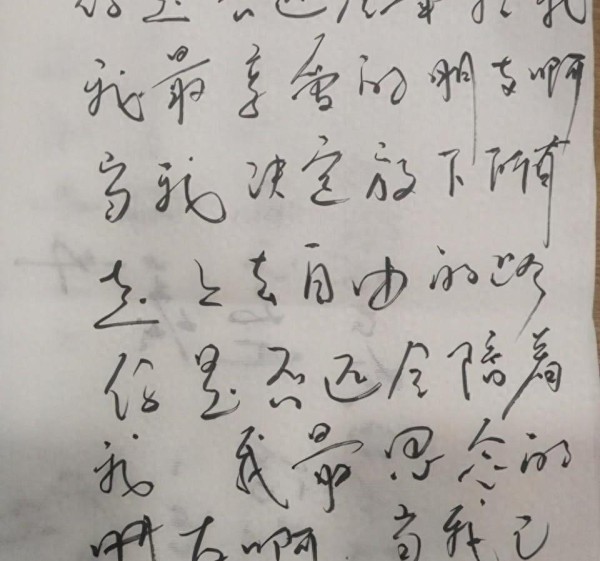 你是否还会牵挂我
我最亲爱的朋友啊
当我决定放下所有
走上去自由的路
你是否还会陪着
我 我最思念的
朋友啊 当我已